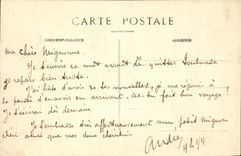 CARTE POSTALE
CORRESPONDANCE
ADRESSE
Ma chère Mignonne.
Je t'écris ce mot avant de quitter Toulouse
Je repars bien triste.
J'ai hâte d'avoir de tes nouvelles, je me réjouis à
la pensée d'en avoir en arrivant. As-tu fait bon voyage?
Je t'écrirai dès demain.
Je t'embrasse affectueusement mon petit Mignon
chéri ainsi que mes deux
André